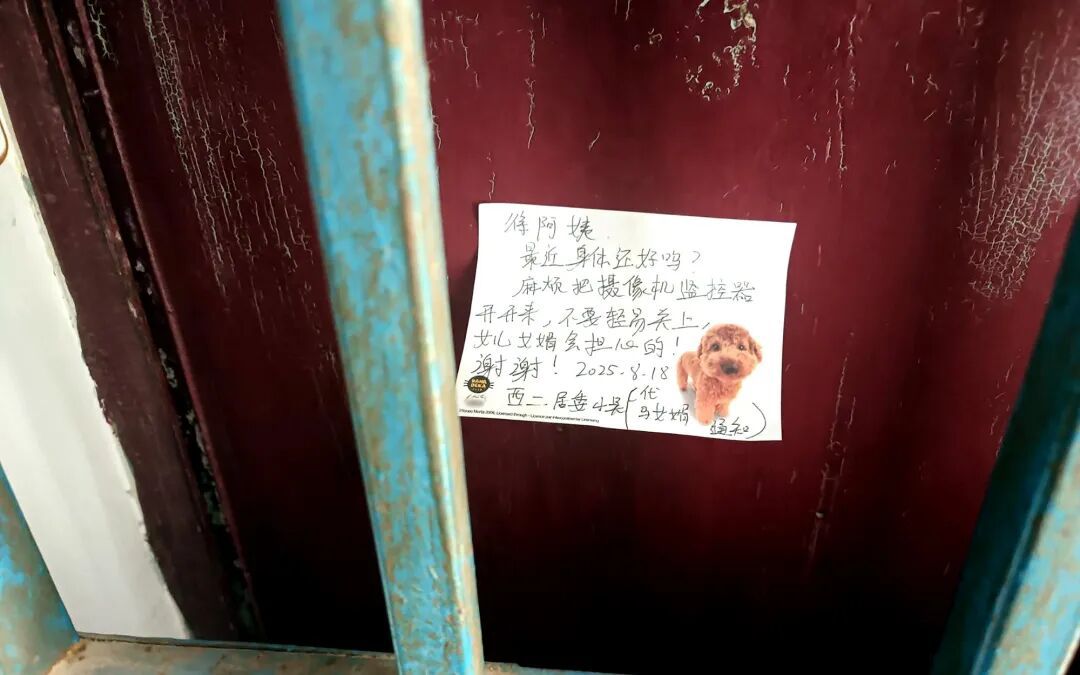 徐阿姨.
最近身体还好吗?
麻烦把摄像机监控器
开开来,不要轻易关上,
女儿女婿会担心的!
谢谢! 2025.8.18
西二.居委小吴(代
与女婿 通知)
HANA
DEKA
CLUB